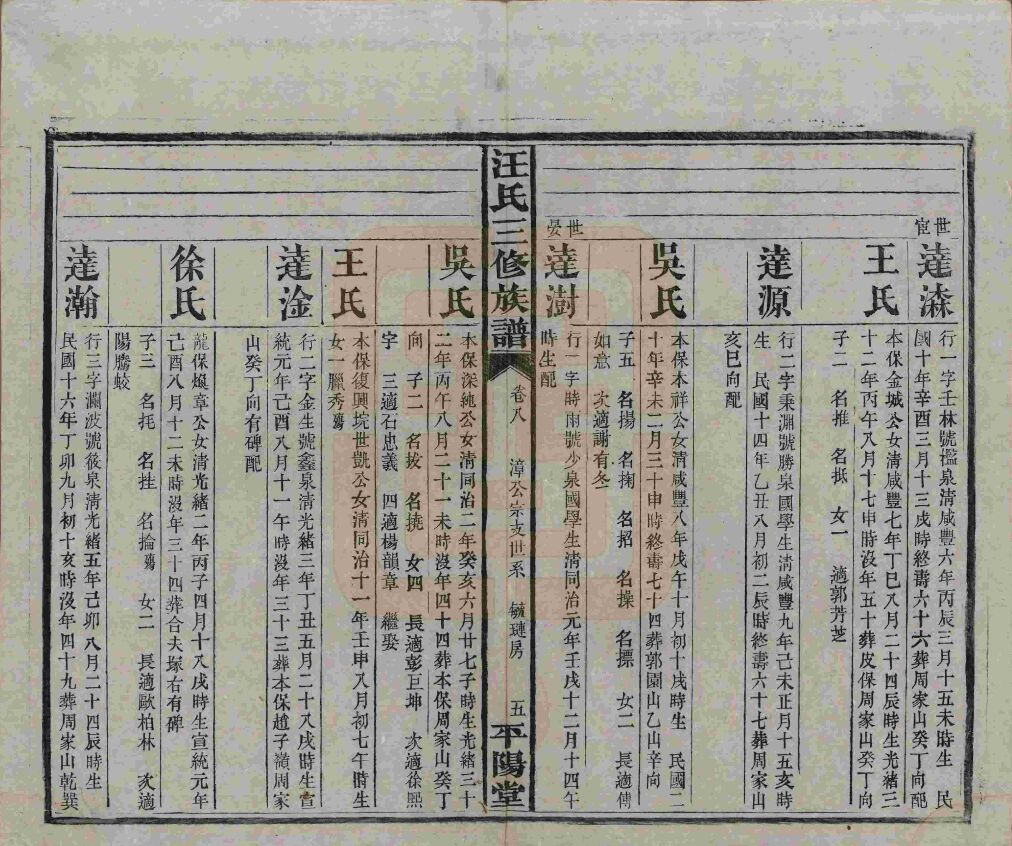 世宦
達潹
行一字壬林號㵎泉淸咸豐六年丙辰三月十五未時生　民
國十年辛酉三月十三戌時終壽六十六葬周家山癸丁向配
王氏
本保金城公女淸咸豐七年丁巳八月二十四辰時生光緒三
十二年丙午八月十七申時沒年五十葬皮保周家山癸丁向
子二　名推　名抵　女一　適郭芳芝
達源
行二字秉淵號勝泉國學生淸咸豐九年己未正月十五亥時
生　民國十四年乙丑八月初二辰時終壽六十七葬周家山
亥巳向配
吳氏
本保本祥公女淸咸豐八年戊午十月初十戌時生　民國二
十年辛未二月三十申時終壽七十四葬郭園山乙山辛向
子五　名揚　名掬　名招　名操　名摽　女二　長適傅
如意　次適謝有冬
世晏
達澍
行一字時雨號少泉國學生淸同治元年壬戌十二月十四午
時生配
汪氏三修族譜
卷八　漳公宗支世系　毓璉房　五
平陽堂
吳氏
本保深純公女淸同治二年癸亥六月廿七子時生光緒三十
二年丙午八月二十一未時沒年四十四葬本保周家山癸丁
向　子二　名拔　名撓　女四　長適彭巨坤　次適徐熙
字　三適石忠義　四適楊韻章　繼娶
王氏
本保復興垸世凱公女淸同治十一年壬申八月初七午時生
女一臘秀殤
達淦
行二字金生號鑫泉淸光緒三年丁丑五月二十八戌時生宣
統元年己酉八月十一午時沒年三十三葬本保趙子嶺周家
山癸丁向有碑配
徐氏
龍保煥章公女淸光緒二年丙子四月十八戌時生宣統元年
己酉八月十二未時沒年三十四葬合夫塚右有碑
子三　名托　名挂　名掄殤　女二　長適歐柏林　次適
陽騰蛟
達瀚
行三字瀾波號後泉淸光緒五年己卯八月二十四辰時生
民國十六年丁卯九月初十亥時沒年四十九葬周家山乾巽